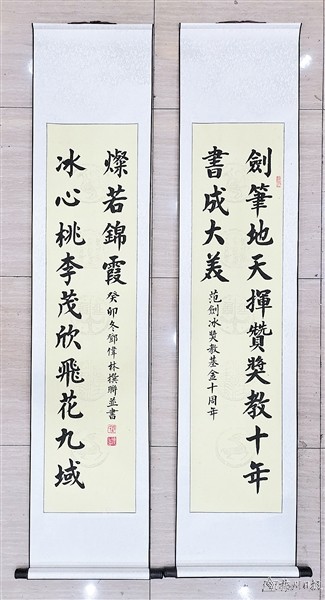 劍筆地天揮贊獎教十年
書成大義
范劍冰獎教基金十周年
冰心桃李茂欣飛花九域
燦若錦霞
癸卯冬鄧偉林撰聯並書
梅州日报